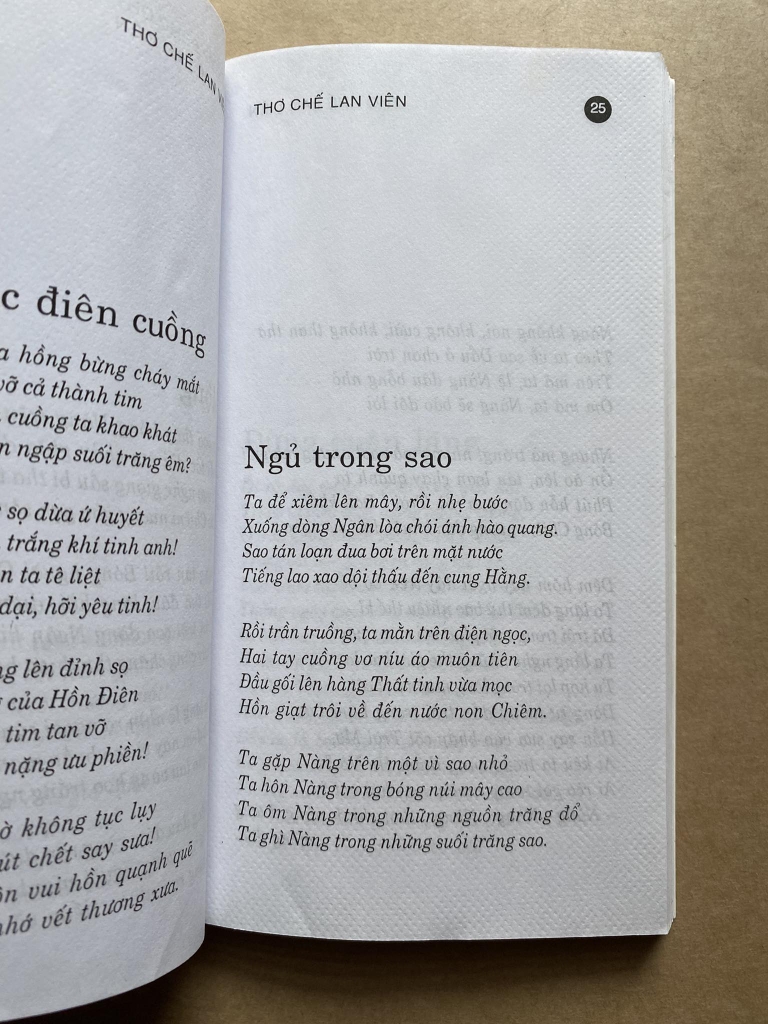 THƠ CHẾ LAN
điên cuồng
hồng bừng cháy mắt
cả thành tim
cuồng ta khao khát
ngập suối trăng êm?
sọ dừa ứ huyết
trắng khí tinh anh!
ta tê liệt
dại, hỡi yêu tinh!
lên đỉnh sọ
của Hồn Điên
tim tan vỡ
nặng ưu phiền!
không tục lụy
chết say sưa!
vui hồn quạnh quẽ
nhớ vết thương xưa.
THƠ CHẾ LAN VIÊN
25
Ngủ trong sao
Ta để xiêm lên mây, rồi nhẹ bước
Xuống dòng Ngân lòa chói ánh hào quang.
Sao tán loạn đua bơi trên mặt nước
Tiếng lao xao dội thấu đến cung Hằng.
Rồi trần truồng, ta mằn trên điện ngọc,
Hai tay cuồng vơ níu áo muôn tiên
Đầu gối lên hàng Thất tinh vừa mọc
Hồn giạt trôi về đến nước non Chiêm.
Ta gặp Nàng trên một vì sao nhỏ
Ta hôn Nàng trong bóng núi mây cao
Ta ôm Nàng trong những nguồn trăng đổ
Ta ghì Nàng trong những suối trăng sao.